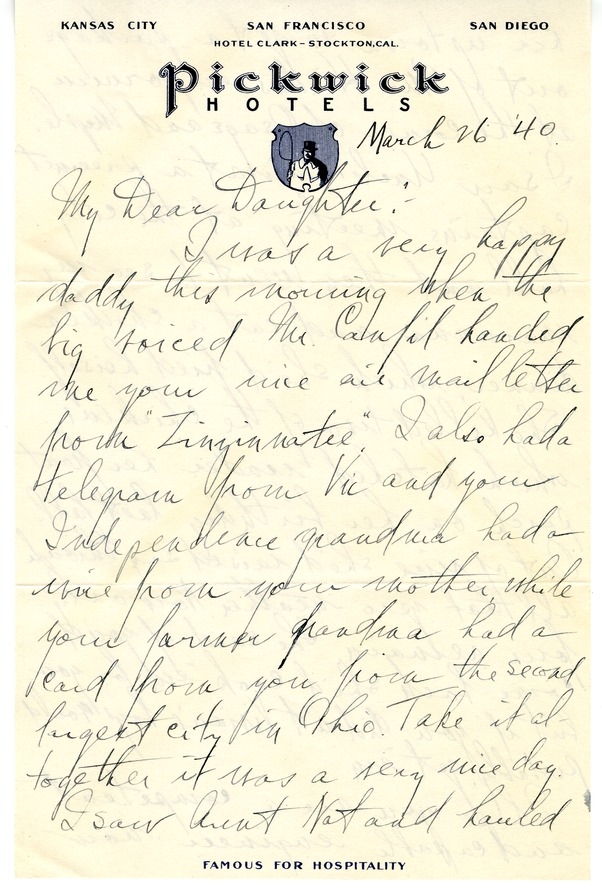 KANSAS CITY SAN FRANCISCO SAN DIEGO
HOTEL CLARK - STOCKTON, CAL.
Pickwick
HOTELS
March 26 '40.
My Dear Daughter:-
I was a very happy
daddy this morning when the
big voiced Mr. Canfil handed
me your nice air mail letter
from "Zinzinnatee". I also had a
telegram from Vic and your
Independence grandma had a
wire from your mother while
your farmer grandma had a
card from you from the second
largest city in Ohio. Take it al-
together it was a very nice day.
I saw Aunt Nat and hauled
FAMOUS FOR HOSPITALITY